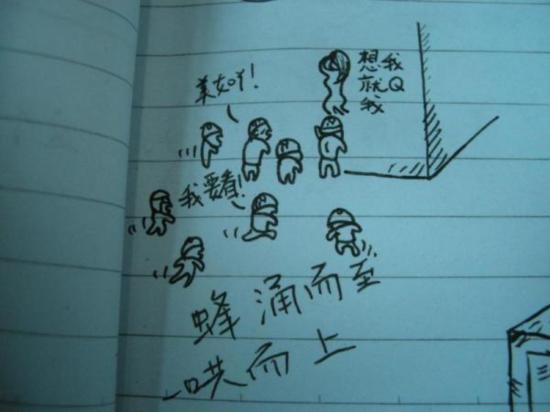 想我
就Q
我
美女吖!
我要看!
蜂涌而至
一哄而上